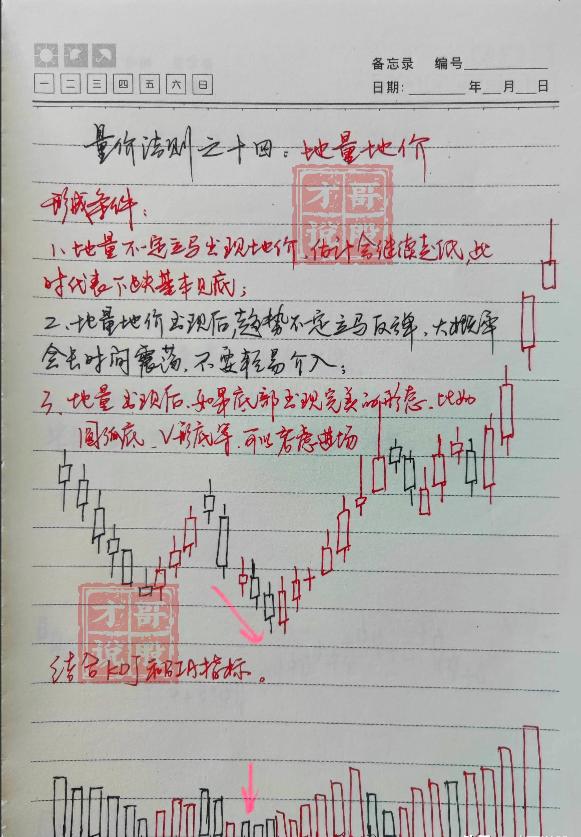 备忘录 编号
一 二 三 四 五 六 日
日期: 年 月 日
量价法则之十四：地量地价
形成条件：
1、地量不一定立马出现地价，估计会继续走低，此
时代表下跌基本见底；
2、地量地价出现后，趋势不一定立马反弹，大概率
会长时间震荡，不要轻易介入；
3、地量出现后，如果底部出现完美的形态，比如
圆弧底、V形底等，可以考虑进场
才哥
说股
才哥
说股
结合KDJ和指标。